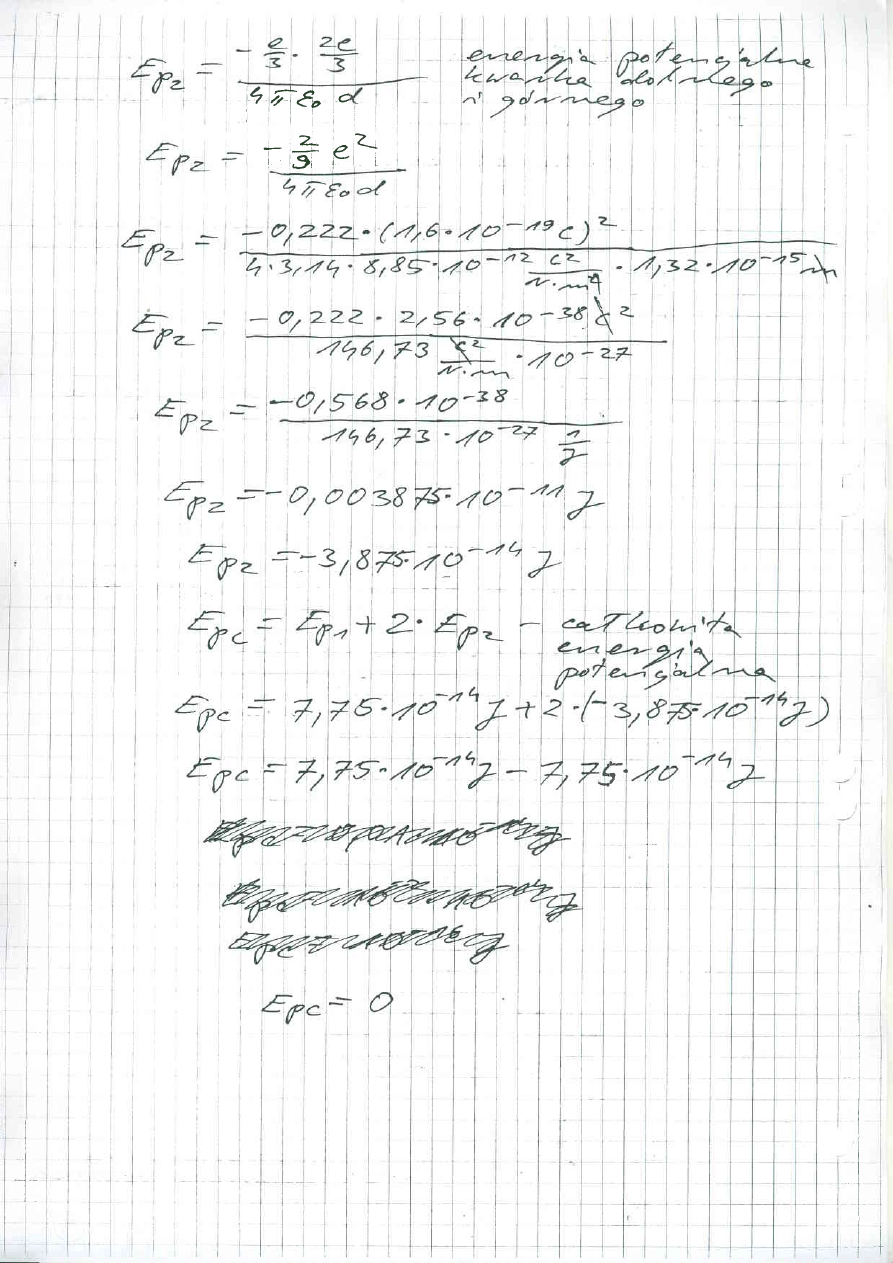 E_p2 = (-e/3 · 2e/3) / (4πε₀ d) energia potencjalna
kwarka dolnego
i górnego
E_p2 = (-2/9 e²) / (4πε₀d)
E_p2 = (-0,222·(1,6·10⁻¹⁹C)²) / (4·3,14·8,85·10⁻¹² C²/(N·m²) · 1,32·10⁻¹⁵m)
E_p2 = (-0,222 · 2,56 · 10⁻³⁸ C²) / (146,73 C²/(N·m) · 10⁻²⁷)
E_p2 = (-0,568 · 10⁻³⁸) / (146,73 · 10⁻²⁷ 1/J)
E_p2 = -0,003875·10⁻¹¹ J
E_p2 = -3,875·10⁻¹⁴ J
E_pc = E_p1 + 2·E_p2 - całkowita
energia
potencjalna
E_pc = 7,75·10⁻¹⁴J + 2·(-3,875·10⁻¹⁴J)
E_pc = 7,75·10⁻¹⁴J - 7,75·10⁻¹⁴J
E_pc = 0